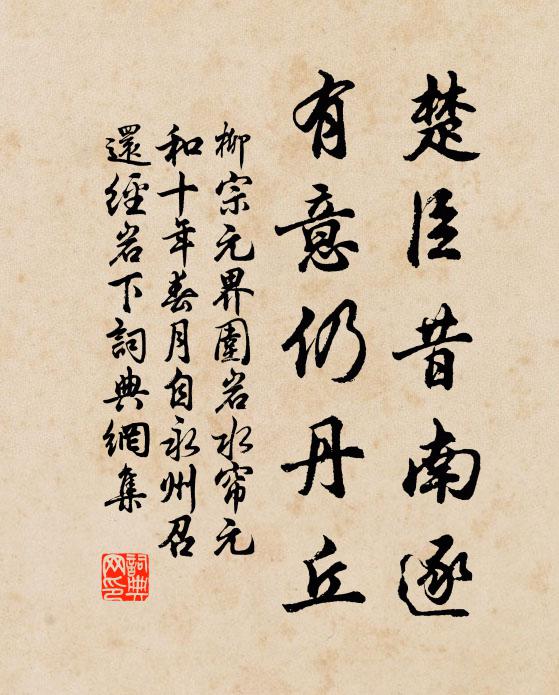 楚臣昔南逐
有意仍丹丘
柳宗元界圍岩水帘元
和十年春月自永州召
還經岩下詞典網集
詞典
网印